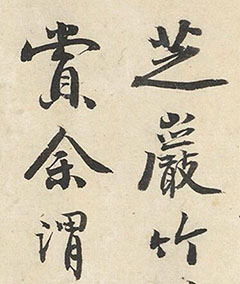 芝巖竹
賞余謂